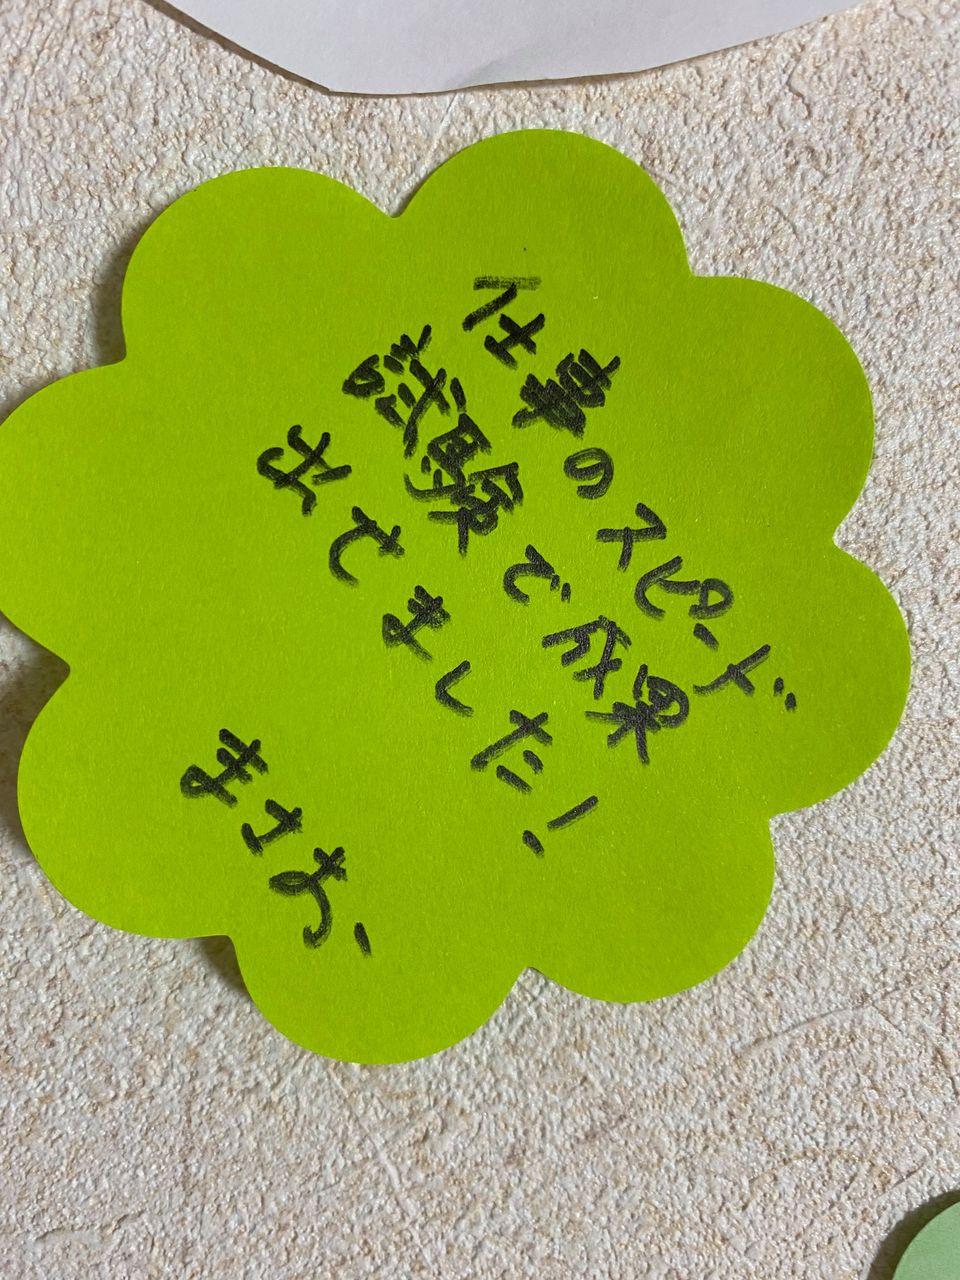 仕事のスピード
試験で成果
がでました!
まさお